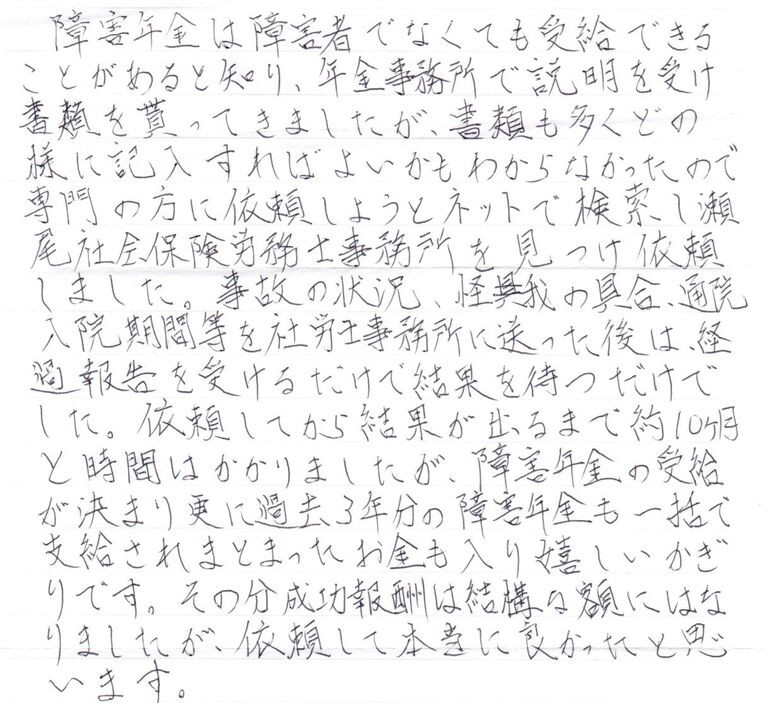 障害年金は障害者でなくても受給できる
ことがあると知り、年金事務所で説明を受け
書類を貰ってきましたが、書類も多くどの
様に記入すればよいかもわからなかったので
専門の方に依頼しようとネットで検索し瀬
尾社会保険労務士事務所を見つけ依頼
しました。事故の状況、怪我の具合、通院
入院期間等を社労士事務所に送った後は、経
過報告を受けるだけで結果を待つだけで
した。依頼してから結果が出るまで約10ヶ月
と時間はかかりましたが、障害年金の受給
が決まり更に過去3年分の障害年金も一括で
支給されまとまったお金も入り嬉しいかぎ
りです。その分成功報酬は結構な額にはな
りましたが、依頼して本当に良かったと思
います。